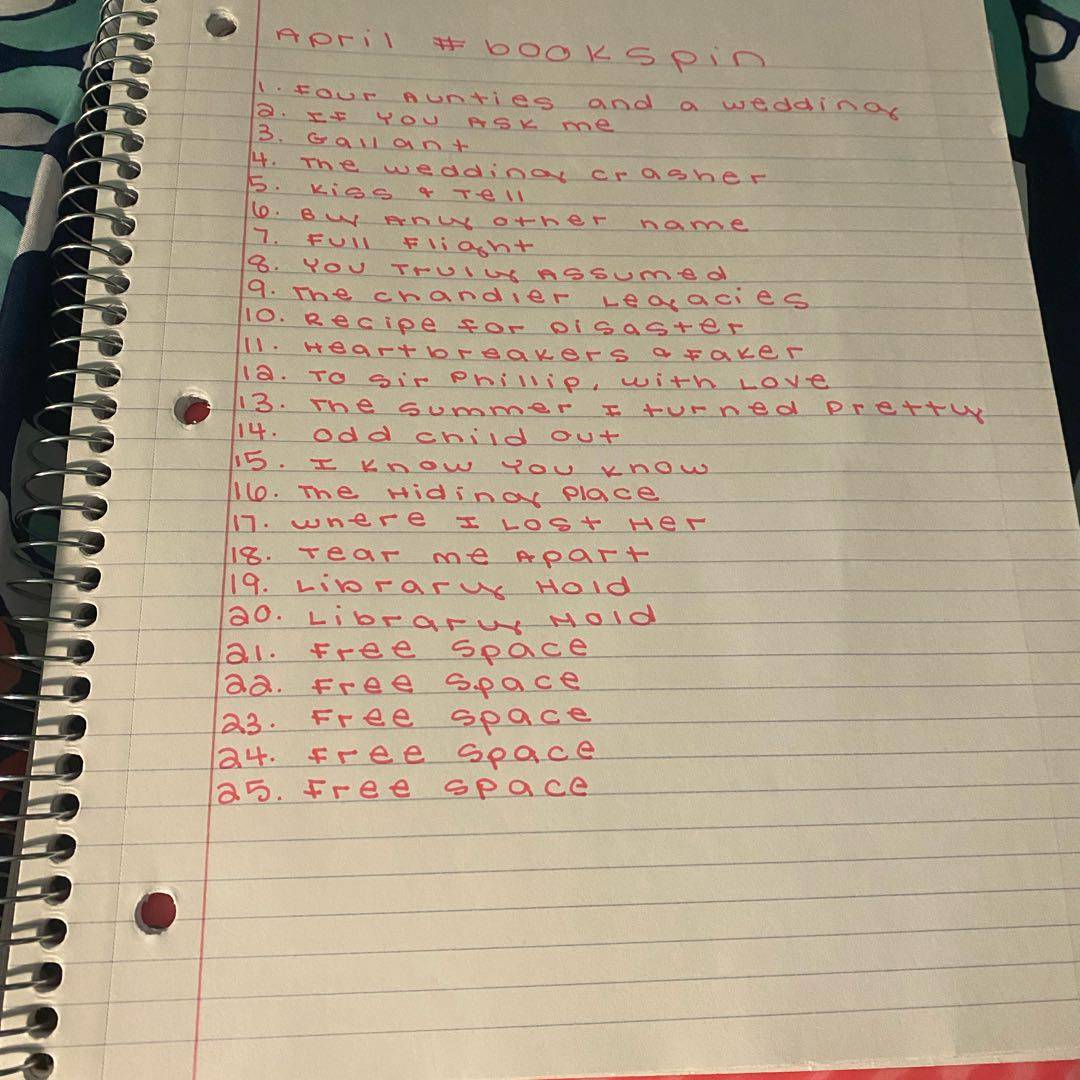 April #bookspin
1. Four Aunties and a wedding
2. If You Ask me
3. Gallant
4. The wedding crasher
5. Kiss & Tell
6. By Any other name
7. Full Flight
8. You Truly Assumed
9. The chandler Legacies
10. Recipe for Disaster
11. Heartbreakers & Faker
12. To Sir Phillip, with Love
13. The Summer I turned Pretty
14. Odd child out
15. I Know You Know
16. The Hiding Place
17. Where I Lost Her
18. Tear me Apart
19. Library Hold
20. Library Hold
21. Free Space
22. Free Space
23. Free Space
24. Free Space
25. Free Space